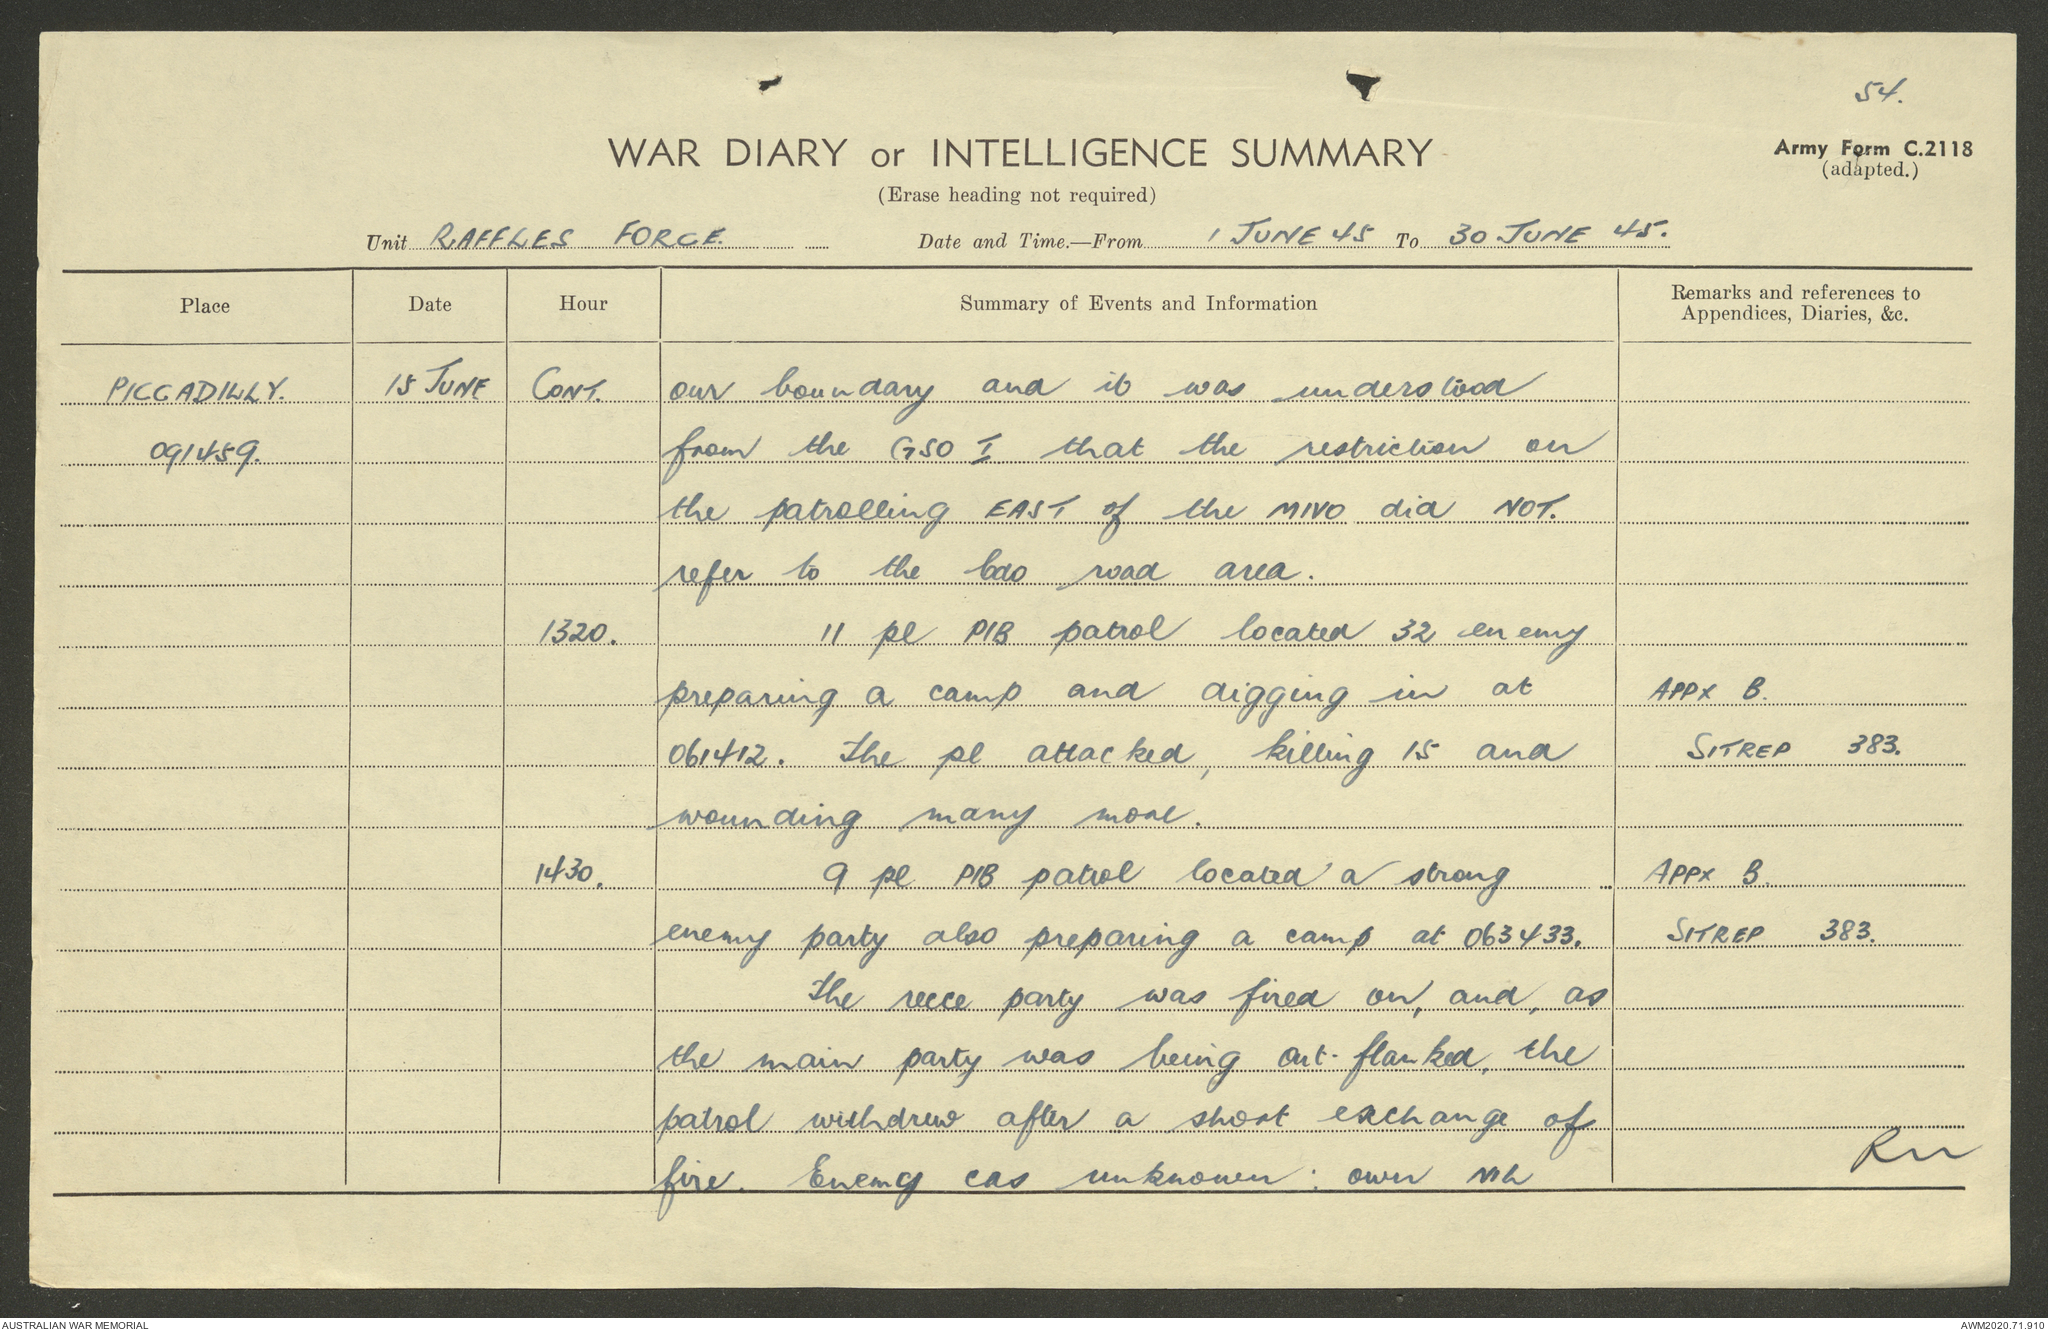 54.
WAR DIARY or INTELLIGENCE SUMMARY
Army Form C.2118
(adapted.)
(Erase heading not required)
Unit RAFFLES FORCE. Date and Time.—From 1 JUNE 45 To 30 JUNE 45.
Place Date Hour Summary of Events and Information Remarks and references to
Appendices, Diaries, &c.
PICCADILLY. 15 JUNE CONT. our boundary and it was understood
091459. from the GSO I that the restriction on
the patrolling EAST of the MIVO did NOT.
refer to the bdo road area.
1320. 11 pl PIB patrol located 32 enemy
preparing a camp and digging in at APPX B.
061412. The pl attacked, killing 15 and SITREP 383.
wounding many more.
1430. 9 pl PIB patrol located a strong APPX B.
enemy party also preparing a camp at 063433. SITREP 383.
The recce party was fired on, and, as
the main party was being out-flanked, the
patrol withdrew after a short exchange of
fire. Enemy cas unknown: own NIL
AUSTRALIAN WAR MEMORIAL AWM2020.71.910